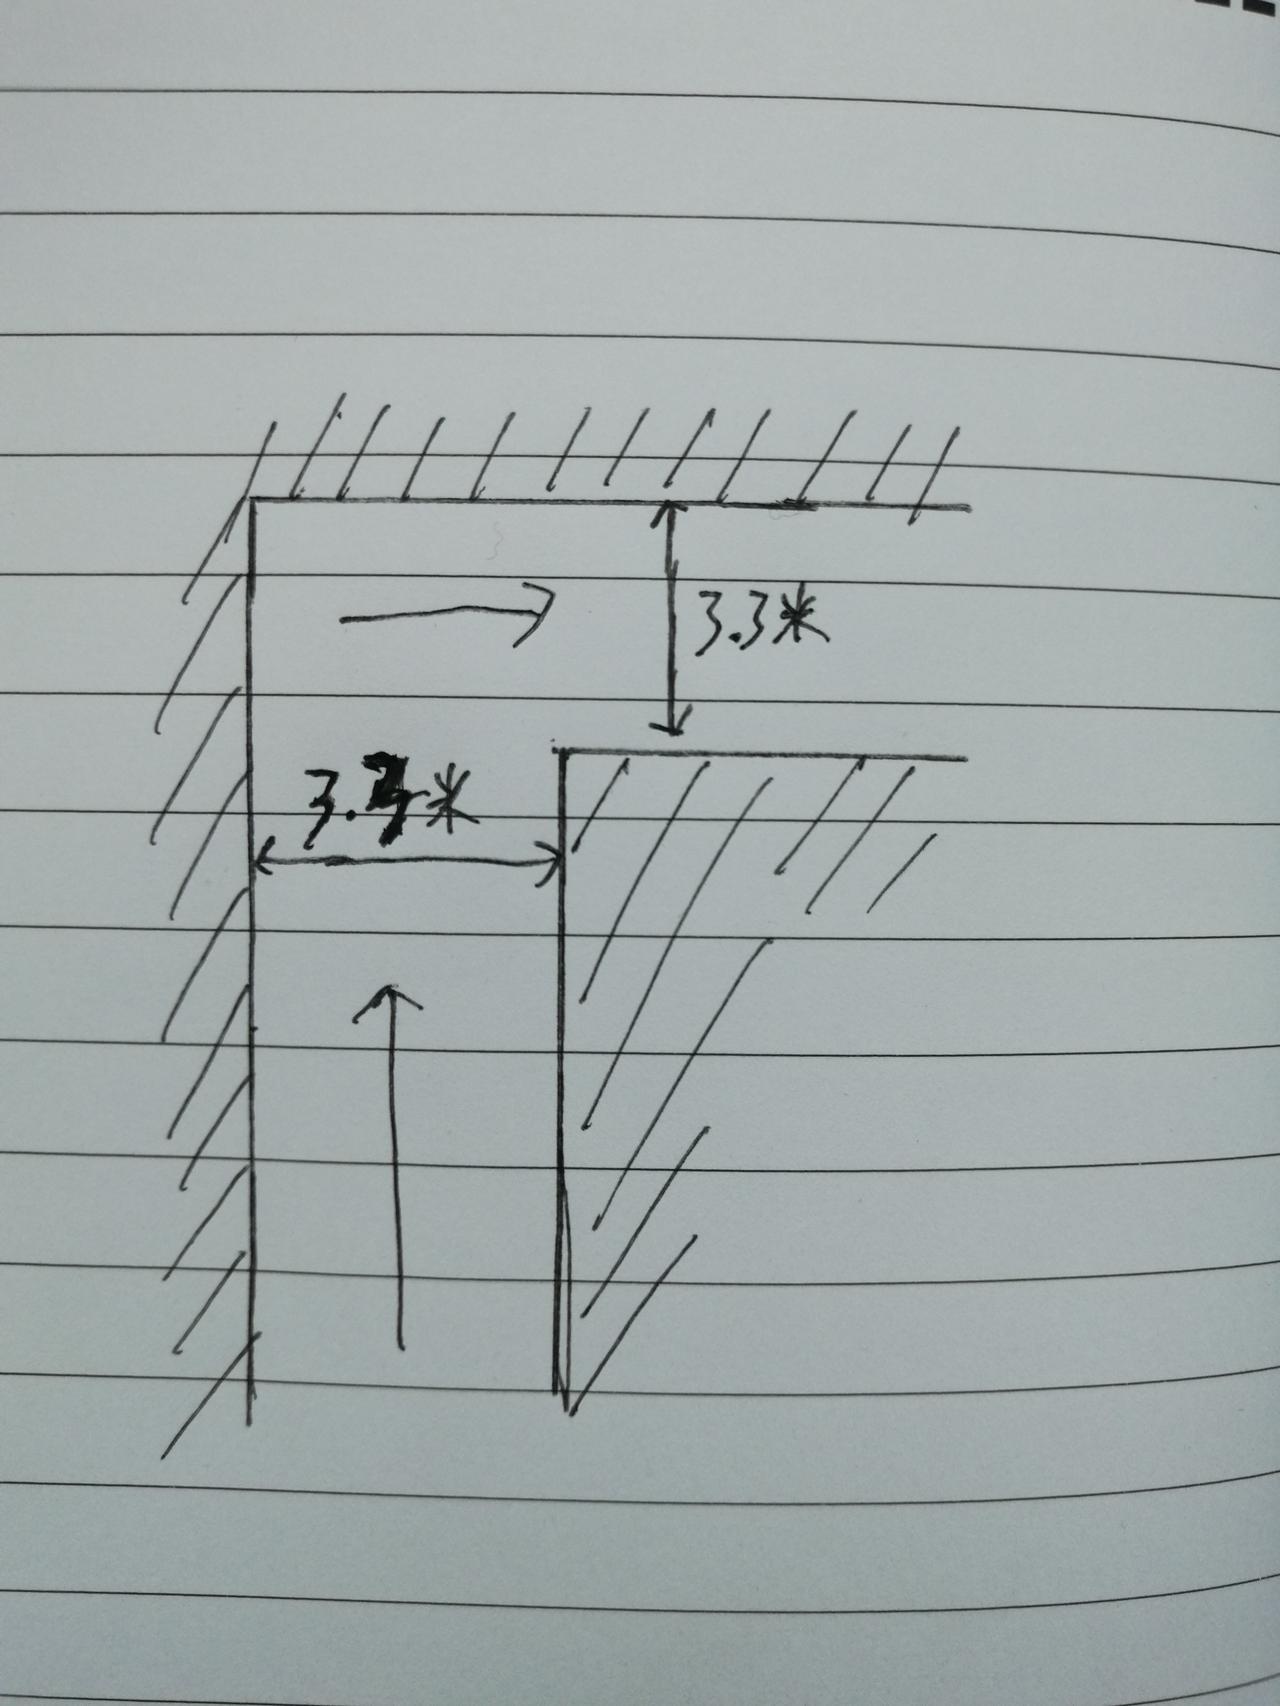 3.3米
3.3米